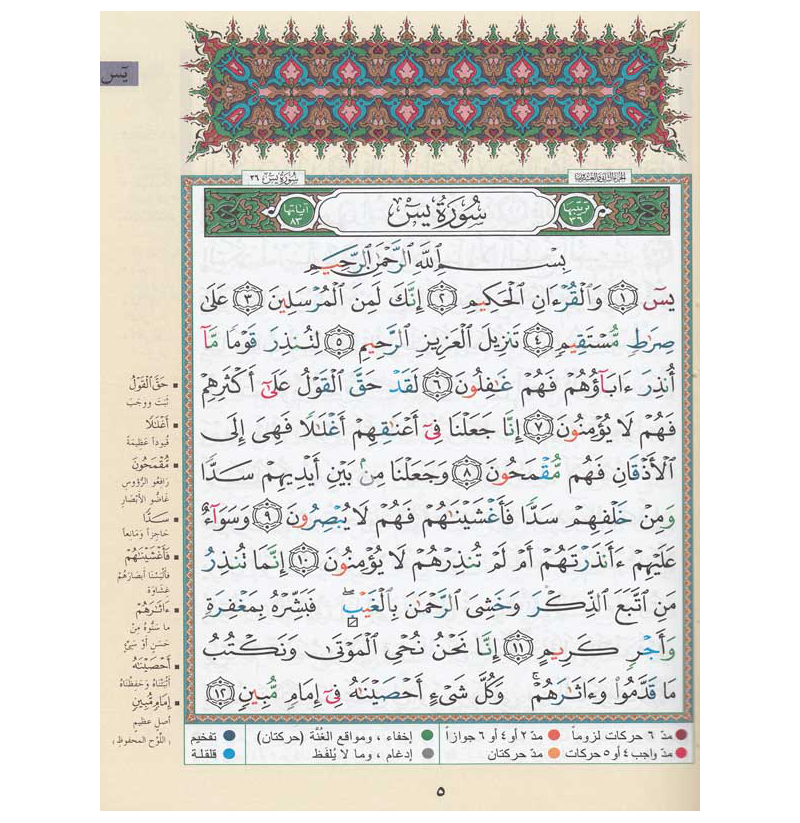 يسٓ
سُورَةُ يسٓ ٣٦
الجزء الثالث والعشرون
ترتيبها ٣٦
سُورَةُ يسٓ
آياتها ٨٣
بِسْمِ ٱللَّهِ ٱلرَّحْمَٰنِ ٱلرَّحِيمِ
يسٓ ١ وَٱلْقُرْءَانِ ٱلْحَكِيمِ ٢ إِنَّكَ لَمِنَ ٱلْمُرْسَلِينَ ٣ عَلَىٰ
صِرَٰطٍ مُّسْتَقِيمٍ ٤ تَنزِيلَ ٱلْعَزِيزِ ٱلرَّحِيمِ ٥ لِتُنذِرَ قَوْمًا مَّآ
أُنذِرَ ءَابَآؤُهُمْ فَهُمْ غَٰفِلُونَ ٦ لَقَدْ حَقَّ ٱلْقَوْلُ عَلَىٰٓ أَكْثَرِهِمْ
فَهُمْ لَا يُؤْمِنُونَ ٧ إِنَّا جَعَلْنَا فِىٓ أَعْنَٰقِهِمْ أَغْلَٰلًا فَهِىَ إِلَى
ٱلْأَذْقَانِ فَهُم مُّقْمَحُونَ ٨ وَجَعَلْنَا مِنۢ بَيْنِ أَيْدِيهِمْ سَدًّا
وَمِنْ خَلْفِهِمْ سَدًّا فَأَغْشَيْنَٰهُمْ فَهُمْ لَا يُبْصِرُونَ ٩ وَسَوَآءٌ
عَلَيْهِمْ ءَأَنذَرْتَهُمْ أَمْ لَمْ تُنذِرْهُمْ لَا يُؤْمِنُونَ ١٠ إِنَّمَا تُنذِرُ
مَنِ ٱتَّبَعَ ٱلذِّكْرَ وَخَشِىَ ٱلرَّحْمَٰنَ بِٱلْغَيْبِ ۖ فَبَشِّرْهُ بِمَغْفِرَةٍ
وَأَجْرٍ كَرِيمٍ ١١ إِنَّا نَحْنُ نُحْىِ ٱلْمَوْتَىٰ وَنَكْتُبُ
مَا قَدَّمُوا۟ وَءَاثَٰرَهُمْ ۚ وَكُلَّ شَىْءٍ أَحْصَيْنَٰهُ فِىٓ إِمَامٍ مُّبِينٍ ١٢
حَقَّ ٱلْقَوْلُ
ثَبَتَ وَوَجَبَ
أَغْلَٰلًا
قُيُوداً عَظِيمَةً
مُّقْمَحُونَ
رَافِعُو الرُّؤُوسِ
غَاضُّو الأَبْصَارِ
سَدًّا
حَاجِزاً وَمَانِعاً
فَأَغْشَيْنَٰهُمْ
فَأَلْبَسْنَا أَبْصَارَهُمْ
غِشَاوَةً
ءَاثَٰرَهُمْ
مَا سَنُّوهُ مِنْ
حَسَنٍ أَوْ سَيِّئٍ
أَحْصَيْنَٰهُ
أَثْبَتْنَاهُ وَحَفِظْنَاهُ
إِمَامٍ مُّبِينٍ
أَصْلٍ عَظِيمٍ
(اللَّوْحِ المحفوظِ)
مدّ ٦ حركات لزوماً مدّ ٢ أو ٤ أو ٦ جوازاً إخفاء ، ومواقع الغُنَّة (حركتان) تفخيم
مدّ واجب ٤ أو ٥ حركات مدّ حركتان إدغام ، وما لا يُلفَظ قلقلة
٥